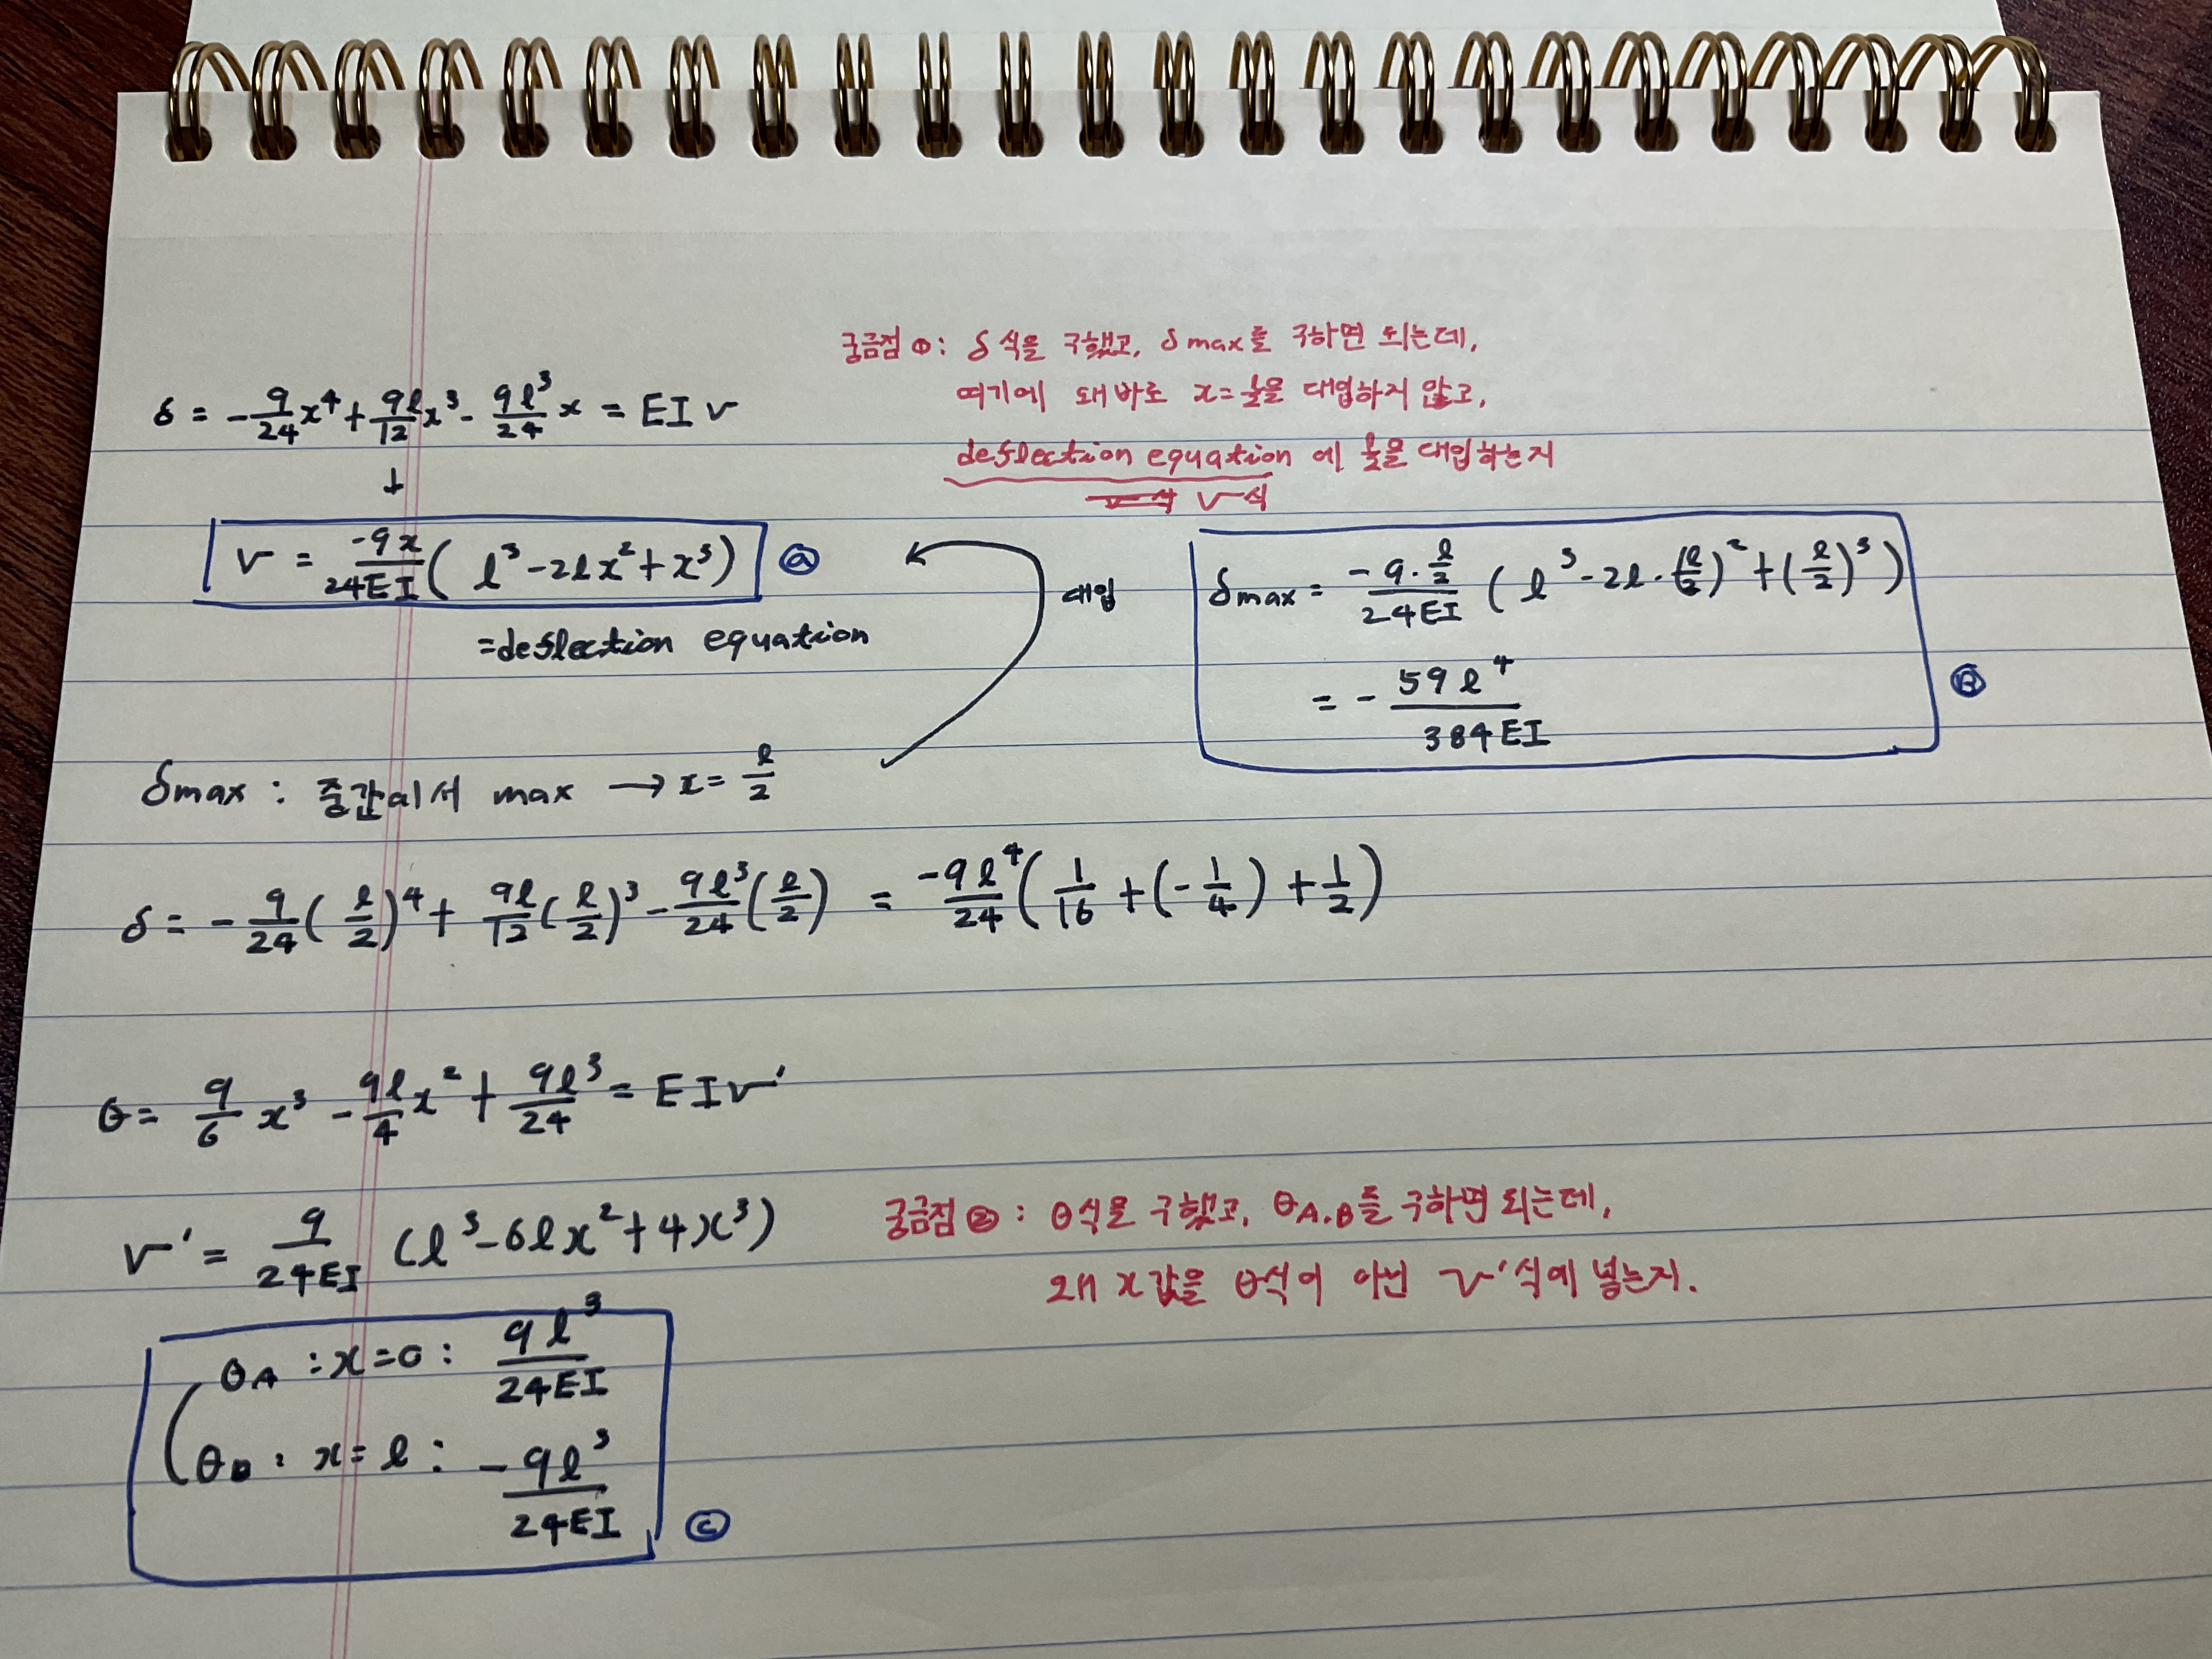 궁금점 ①: δ 식을 구했고, δmax를 구하면 되는데,
여기에 왜 바로 x=l/2을 대입하지 않고,
deflection equation 에 l/2을 대입하는지
v식
δ = -q/24 x⁴ + ql/12 x³ - ql³/24 x = EI v
↓
v = -qx/24EI ( l³-2lx²+x³) ⓐ
=deflection equation
대입
δmax = -q·l/2 / 24EI ( l³-2l·(l/2)²+(l/2)³)
= - 5ql⁴/384EI ⓑ
δmax : 중간에서 max → x= l/2
δ = - q/24 ( l/2 )⁴ + ql/12 ( l/2 )³ - ql³/24 ( l/2 ) = -ql⁴/24 ( 1/16 + (- 1/4 ) + 1/2 )
θ = q/6 x³ - ql/4 x² + ql³/24 = EIv'
v' = q/24EI (l³-6lx²+4x³)
궁금점 ② : θ식을 구했고, θA,B를 구하면 되는데,
왜 x값을 θ식이 아닌 v'식에 넣는지.
θA : x=0 : ql³/24EI
θB : x=l : -ql³/24EI ⓒ